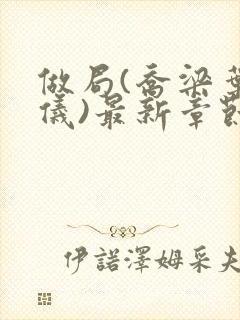 做局(乔梁葉
儀)最新章節
伊諾澤姆采夫